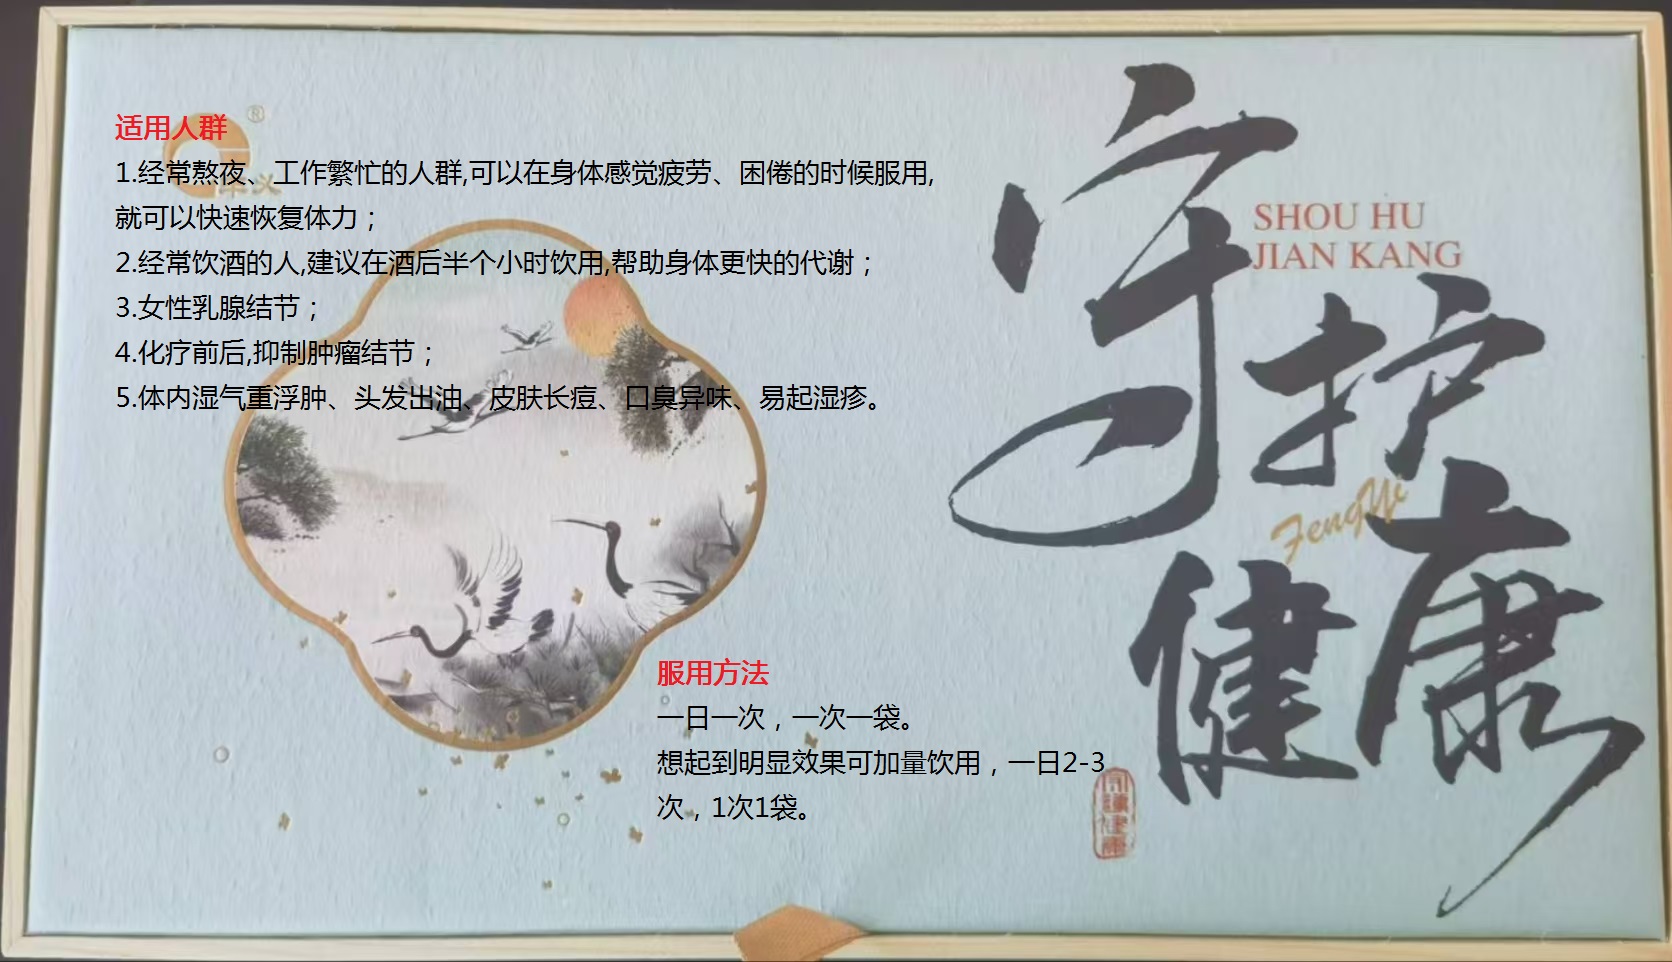 适用人群
®
丰义
1.经常熬夜、工作繁忙的人群,可以在身体感觉疲劳、困倦的时候服用,
就可以快速恢复体力；
2.经常饮酒的人,建议在酒后半个小时饮用,帮助身体更快的代谢；
3.女性乳腺结节；
4.化疗前后,抑制肿瘤结节；
5.体内湿气重浮肿、头发出油、皮肤长痘、口臭异味、易起湿疹。
守护
健康
SHOU HU
JIAN KANG
FengYi
服用方法
一日一次，一次一袋。
想起到明显效果可加量饮用，一日2-3
次，1次1袋。
守護健康